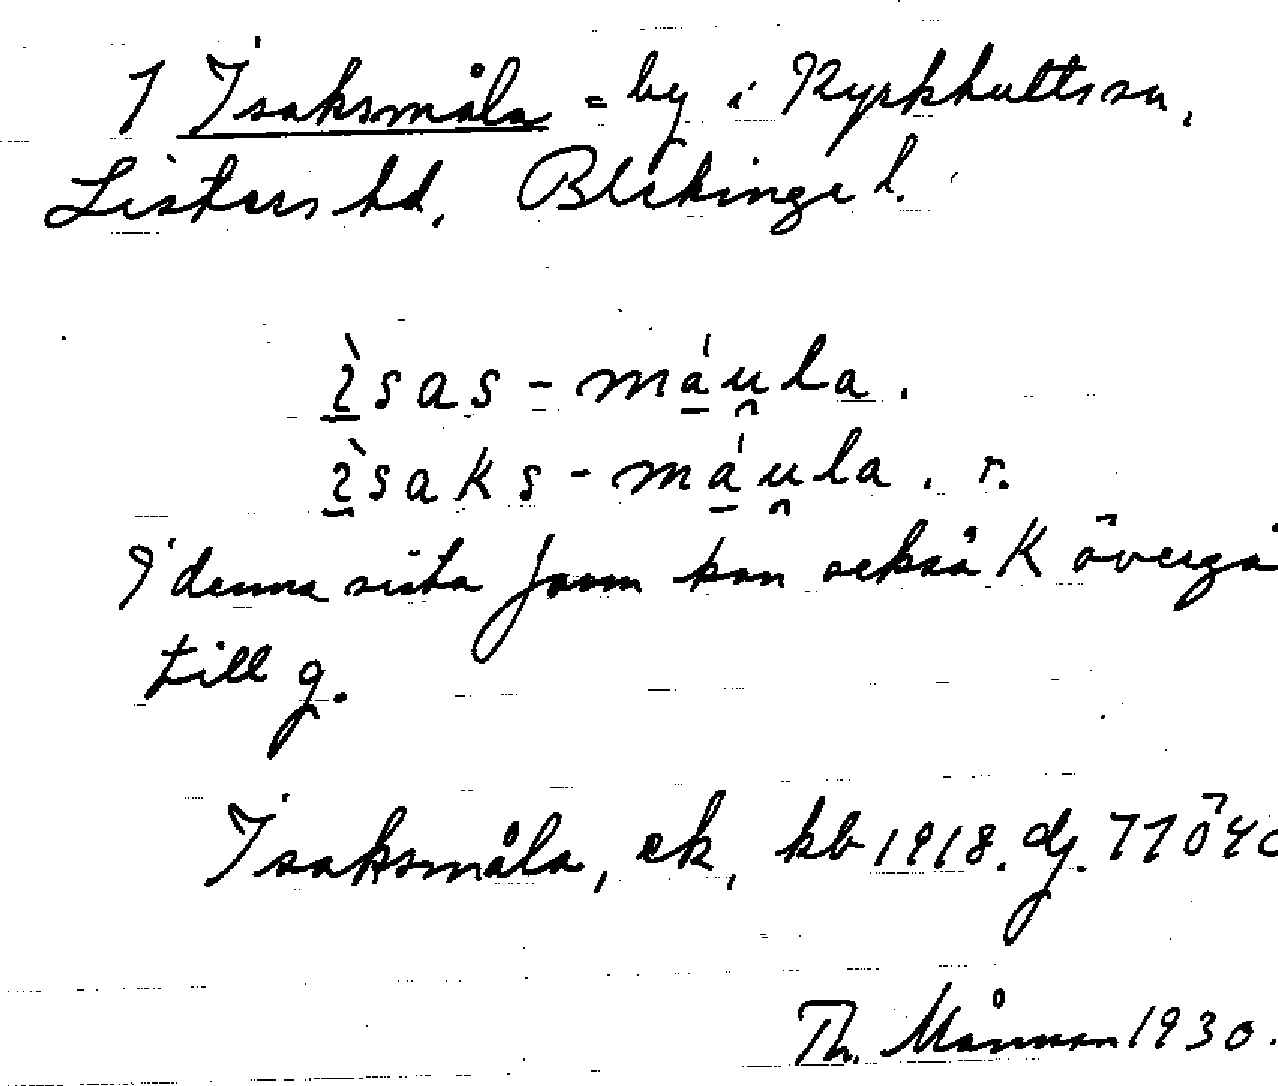 1 Isaksmåla = by i Kyrkhults sn,
Listers hd, Blekinge l.
ìsas-máu̯la.
ìsaks-máu̯la. r.
I denna sista form kan också K övergå
till g.
Isaksmåla, ek, kb 1918.
Th. Månsson 1930.